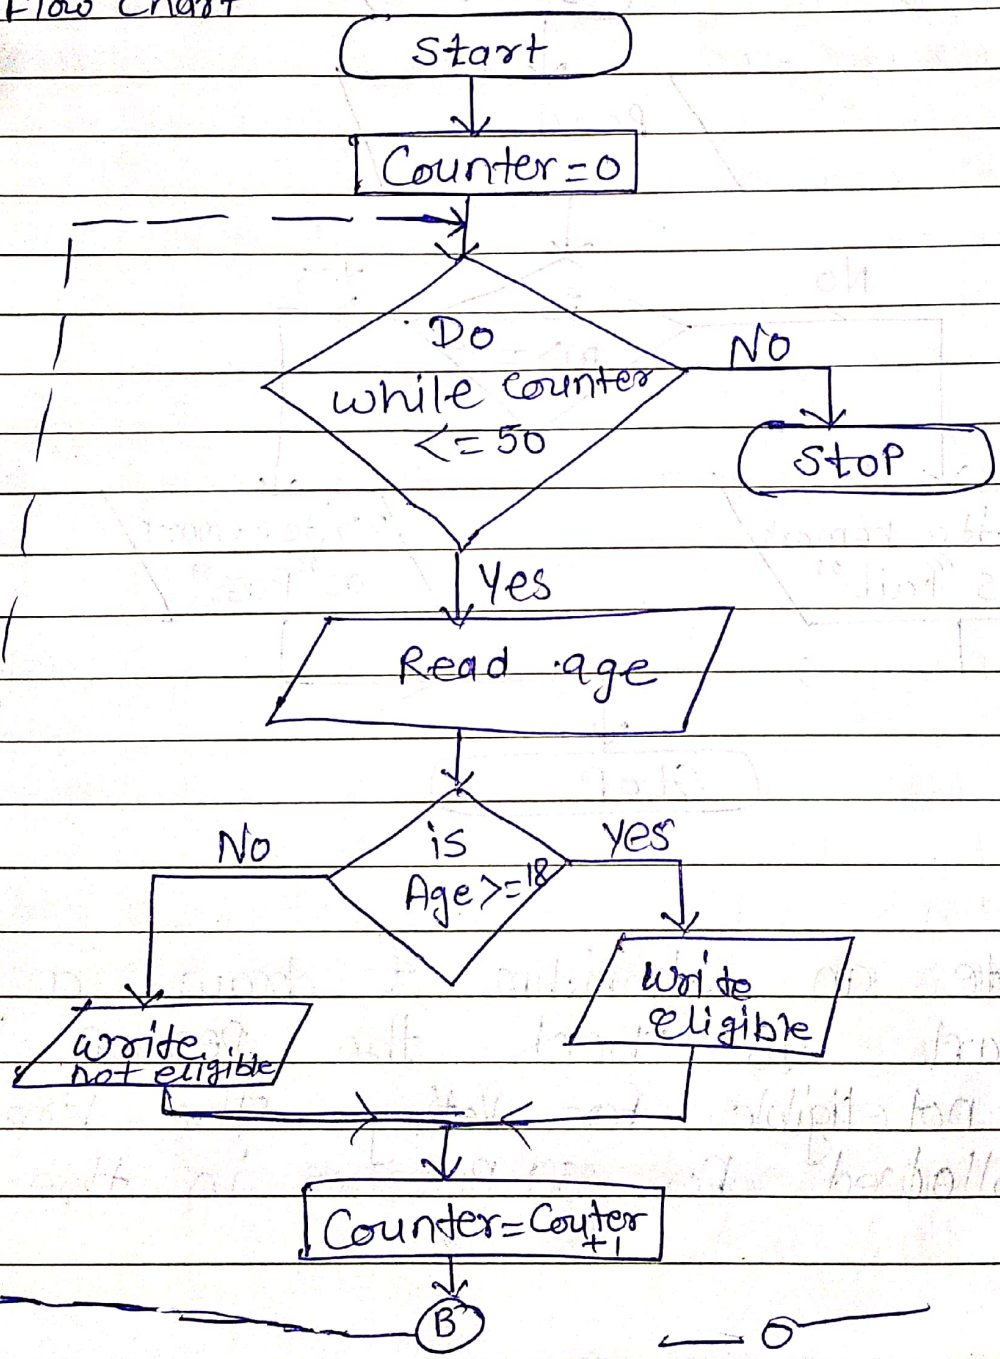 Flow Chart
Start
Counter=0
Do
while counter
<=50
NO
Stop
Yes
Read age
is
Age>=18
No
yes
write
eligible
write
not eligible
Counter=Couter
+1
B